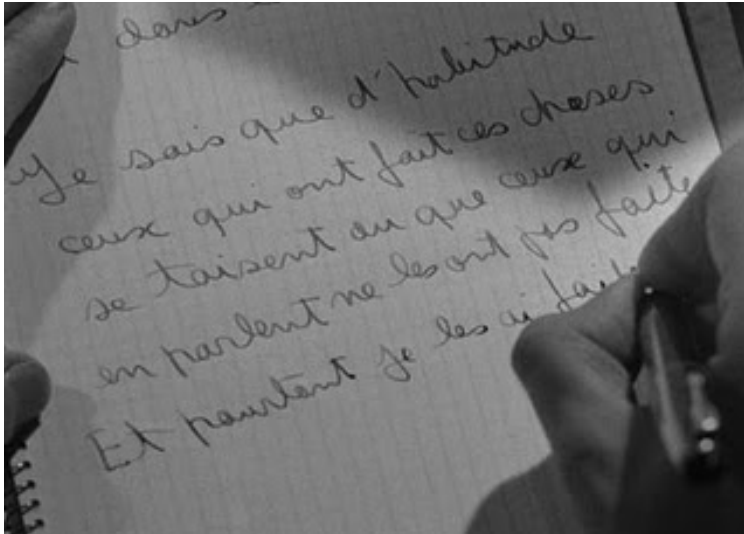 dans
Je sais que d'habitude
ceux qui ont fait ces choses
se taisent ou que ceux qui
en parlent ne les ont pas faite
Et pourtant je les ai fait